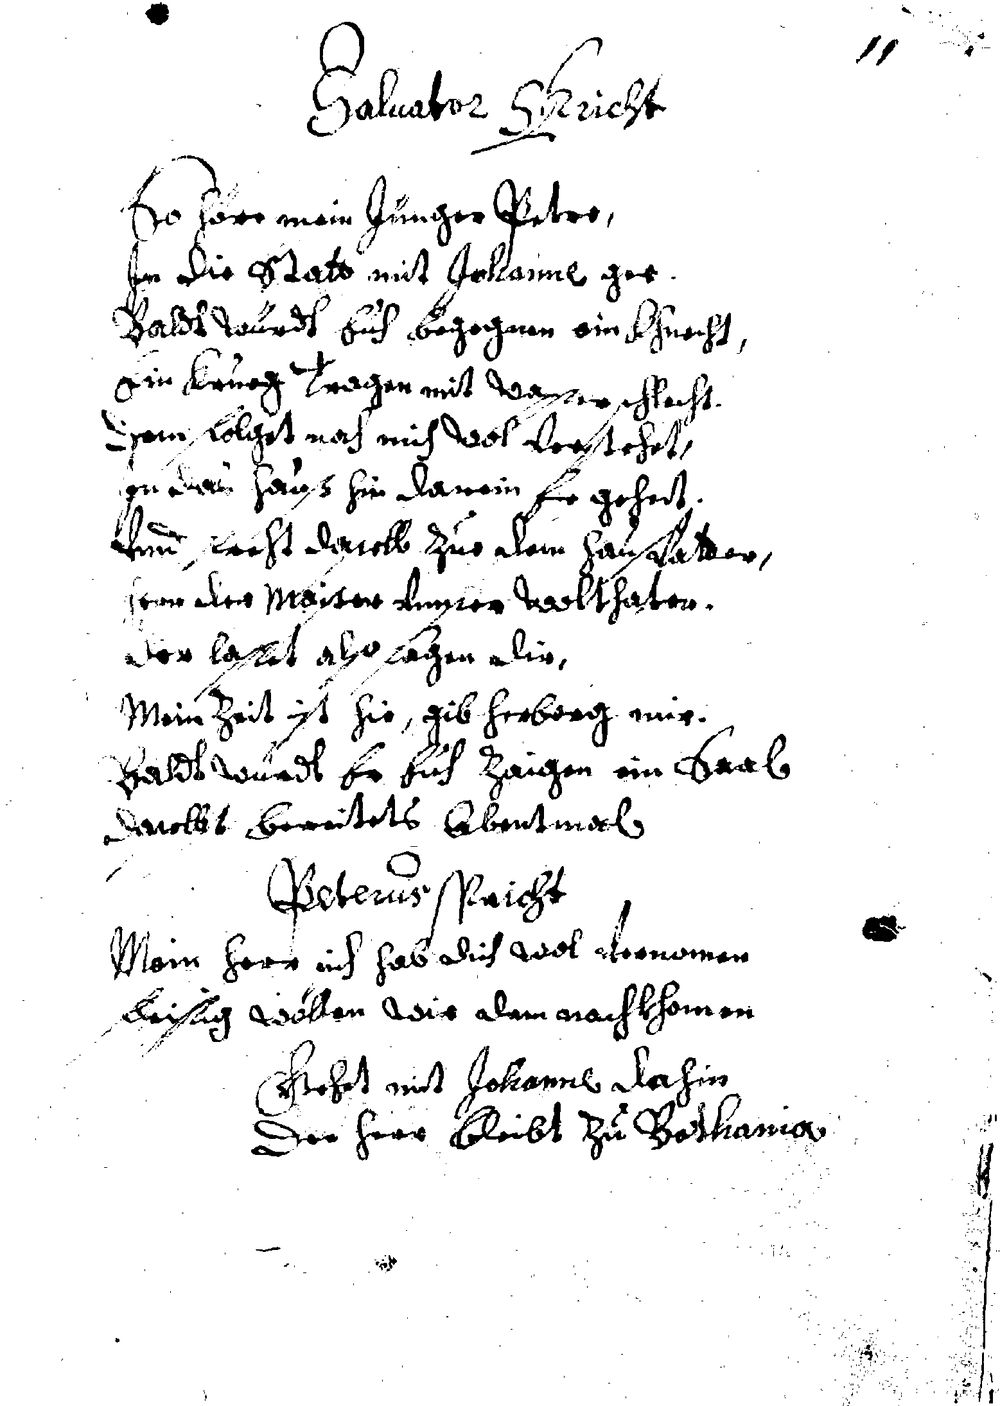 11
Salvator Spricht
So höre mein Jünger Petre,
In die Statt mit Johanne gee.
Baldt würdt Euch begegnen ein Khnecht,
Ein Krueg Tragen mit Wasser schlecht.
Dem folget nach mich wol verstehet,
In das Hauß hin darein Er gehet.
Vnnd secht daselb zue dem Haußvatter,
der Maister vnnser wolthater.
der lasset also sagen dir,
Mein Zeit ist hie, gib herberg mir.
Baldt würdt Er Euch Zaigen ein Saal
daselbst bereitets Abentmal
Peterus Spricht
Mein Herr ich hab dich wol vernomen
fleissig wöllen wir dem nachkhomen
Gehet mit Johanne dahin
Der Herr bleibt zu Bethania